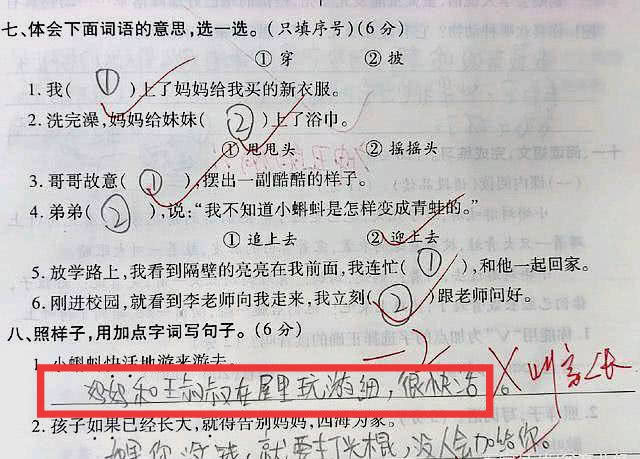 七、体会下面词语的意思,选一选。(只填序号)(6分)
①穿 ②披
1.我( ① )上了妈妈给我买的新衣服。
2.洗完澡,妈妈给妹妹( ② )上了浴巾。
①甩甩头 ②摇摇头
3.哥哥故意( ① ),摆出一副酷酷的样子。
4.弟弟( ② ),说:“我不知道小蝌蚪是怎样变成青蛙的。”
①追上去 ②迎上去
5.放学路上,我看到隔壁的亮亮在我前面,我连忙( ① ),和他一起回家。
6.刚进校园,就看到李老师向我走来,我立刻( ② )跟老师问好。
八、照样子,用加点字词写句子。(6分)
-2
1.小蝌蚪快活地游来游去。
妈妈和王叔叔在屋里玩游细,很快活。 叫家长
2.孩子如果已经长大,就得告别妈妈,四海为家。
如果你没钱,就要打光棍,没人会加给你。